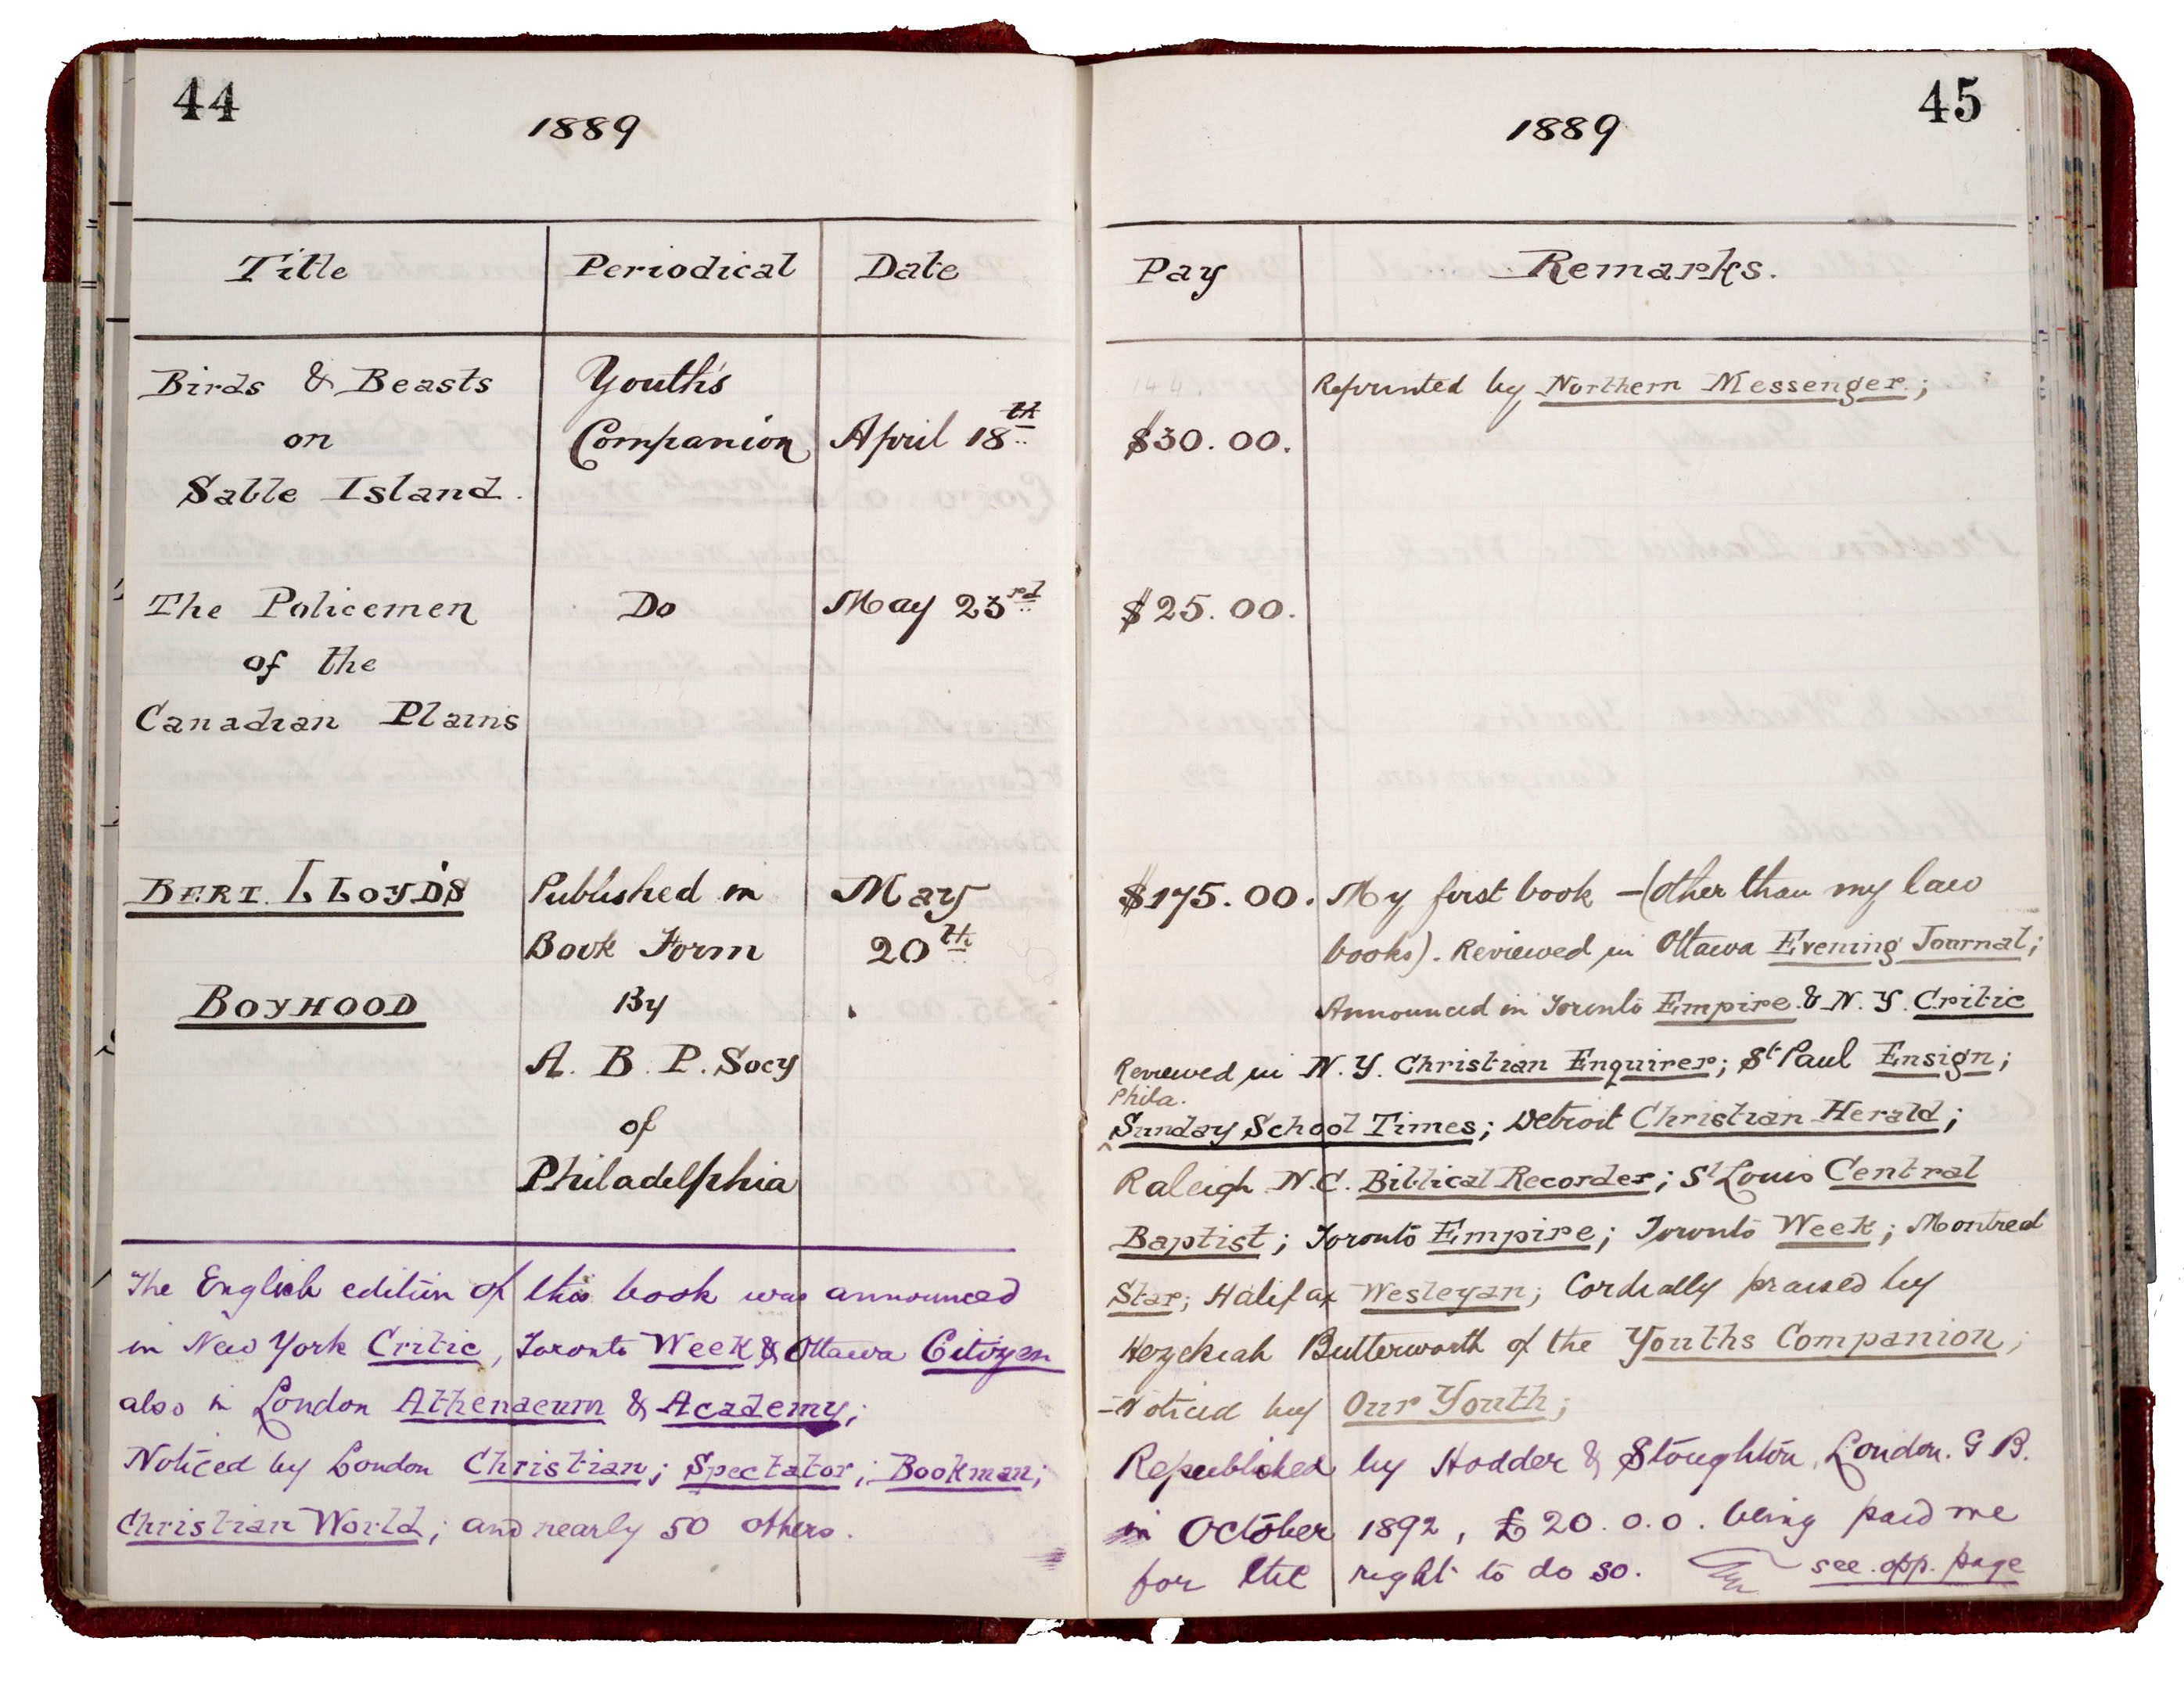 44
1889
Title Periodical Date
Birds & Beasts Youth's
on Companion April 18th
Sable Island.
The Policemen Do May 23rd
of the
Canadian Plains
BERT. LLOYD'S Published in May
Book Form 20th
BOYHOOD By
A. B. P. Socy
of
Philadelphia
The English edition of this book was announced
in New York Critic, Toronto Week & Ottawa Citizen
also in London Athenaeum & Academy;
Noticed by London Christian; Spectator; Bookman;
Christian World; and nearly 50 others.
45
1889
Pay Remarks.
Reprinted by Northern Messenger;
$30.00.
$25.00.
$175.00. My first book - (other than my law
books). Reviewed in Ottawa Evening Journal;
Announced in Toronto Empire & N. Y. Critic
Reviewed in N. Y. Christian Enquirer; St Paul Ensign;
Phila.
^ Sunday School Times; Detroit Christian Herald;
Raleigh N.C. Biblical Recorder; St Louis Central
Baptist; Toronto Empire; Toronto Week; Montreal
Star; Halifax Wesleyan; Cordially praised by
Hezekiah Butterworth of the Youths Companion;
-Noticed by Our Youth;
Republished by Hodder & Stoughton, London. G B.
in October 1892, £20.0.0. being paid me
for the right to do so. see opp. page